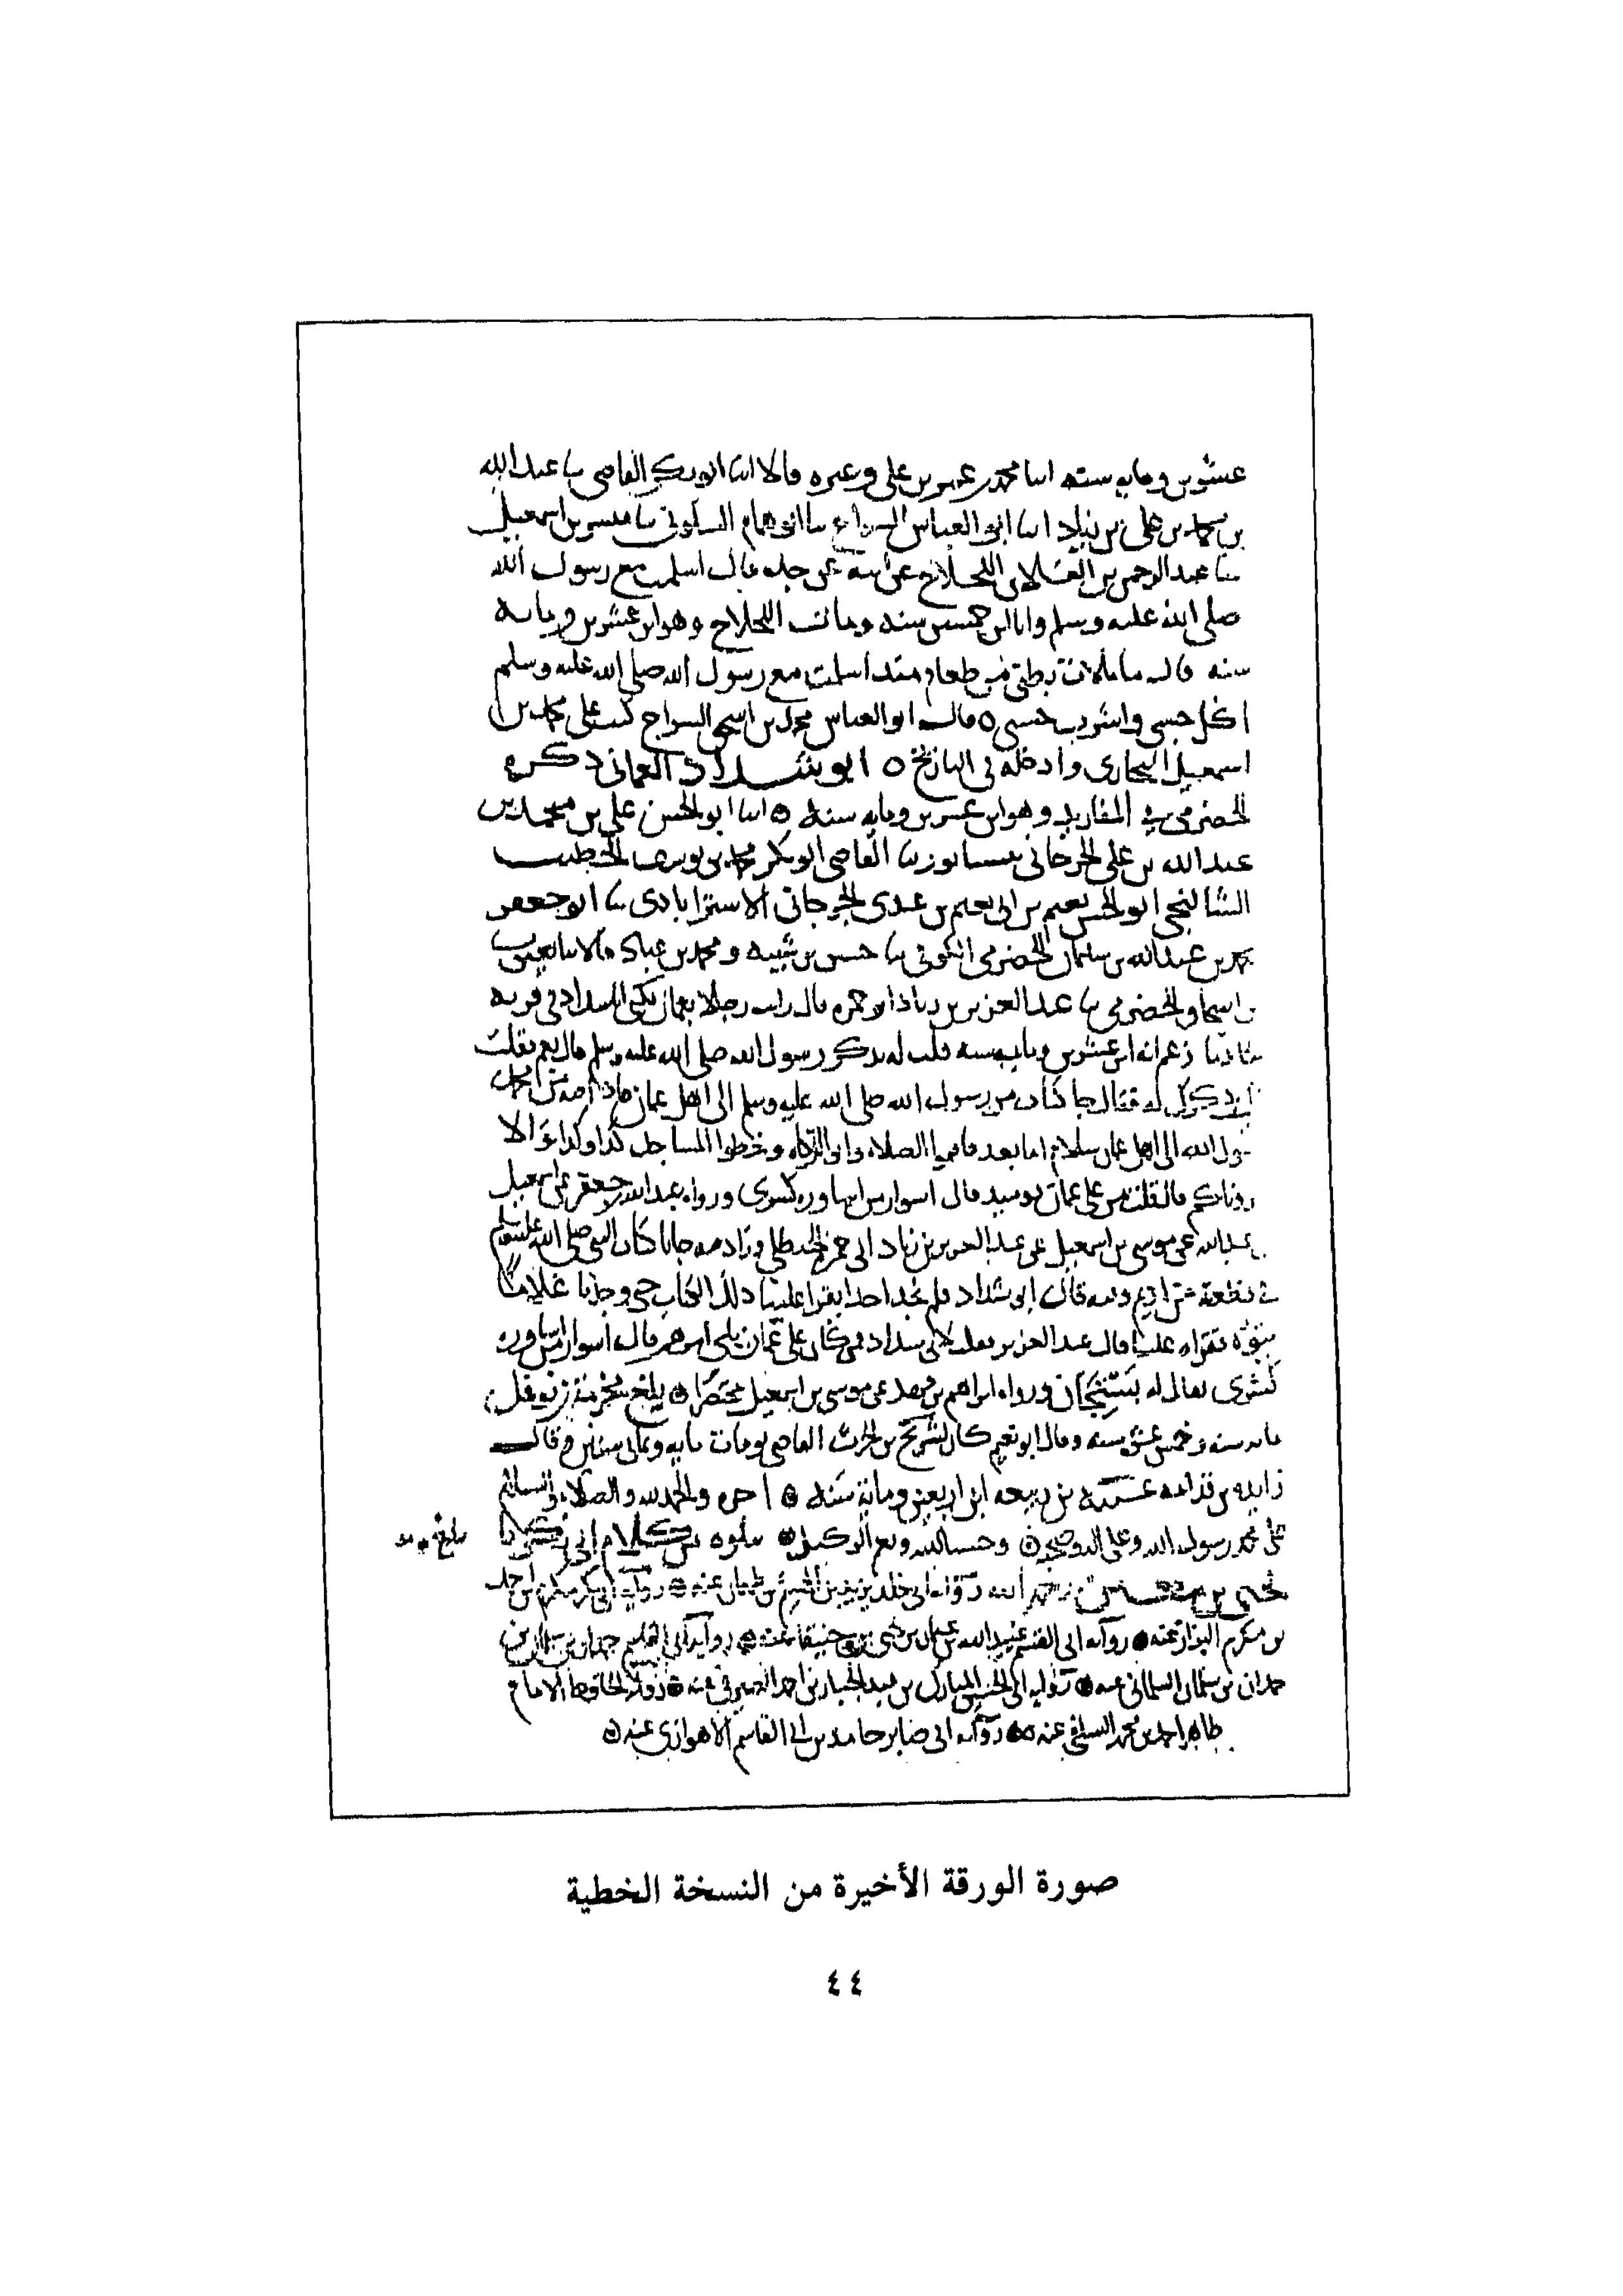 عشرين ومايه سنه اسا محمد بن عمر بن علي وغيره قالا اسا ابو بكر القاضي سا عبد الله
بن محمد بن علي بن زياد اسا ابو العباس السراج سا ابو همام السكوني سا مبشر بن اسمعيل
سا عبد الرحمن بن العلا بن اللجلاج عن ابيه عن جده قال اسلمت مع رسول الله
صلى الله عليه وسلم وانا ابن خمسين سنه ومات اللجلاج وهو ابن عشرين ومايه
سنه قال ما ملات بطني من طعام منذ اسلمت مع رسول الله صلى الله عليه وسلم
اكل حسبي واشرب حسبي ○ قال ابو العباس محمد بن اسحق السراج كتب عني محمد بن
اسمعيل البخاري وادخله في التاريخ ○ ابو شداد العماني ذكره
الحضرمي في المفاريد وهو ابن عشرين ومايه سنه ○ اسا ابو الحسن علي بن محمد بن
عبد الله بن علي الجرجاني سا القاضي ابو بكر محمد بن يوسف الخطيب
الشالنجي ابو الحسن نعيم بن ابي نعيم بن عدي الجرجاني الاستراباذي سا ابو جعفر
محمد بن عبد الله بن سليمان الحضرمي الكوفي سا حسين بن شبيه ومحمد بن عباد قالا سا يعقوب
بن اسحاق الحضرمي سا عبد العزيز بن زياد ابو حمزه قال رايت رجلا بعمان يكنى ابا شداد في قريه
زعم انه ابن عشرين ومايه سنه قلت له تذكر رسول الله صلى الله عليه وسلم قال نعم فقلت
له فقال جا كتاب من رسول الله صلى الله عليه وسلم الى اهل عمان من محمد
رسول الله الى اهل عمان سلام اما بعد فاقيموا الصلاه واتوا الزكاه وخطوا المساجد كذا وكذا والا
قال قلت من على عمان يوميذ قال اسوار من اساوره كسرى ورواه عبد الله بن جعفر عن اسمعيل
بن عبد الله عن موسى بن اسمعيل عن عبد العزيز بن زياد ابي حمزه الحنطلي وزاد فيه جانا كتاب النبي صلى الله عليه وسلم
في قطعة من اديم وفيه قال ابو شداد فلم نجد احدا يقرا علينا ذلك الكتاب حتى وجدنا غلاما
فقراه علينا قال عبد العزيز فقلت لابي شداد من كان على عمان يلي امرهم قال اسوار من اساوره
كسرى يقال له بستنجان ورواه ابراهيم بن فهد عن موسى بن اسمعيل مختصرا ○ بلغ مخرمة بن نوفل
مايه سنه وخمس عشره سنه وقال ابو نعيم كان لشريح بن الحرث القاضي يوم مات مايه وثماني سنين وقال
زايده بن قدامه بن ربيعه ابن اربعين وماية سنه ○ اخره والحمد لله والصلاه والسلام
على محمد رسول الله وعلى اله وصحبه ○ وحسبنا الله ونعم الوكيل ○ يتلوه من كلام ابي زكريا
يحيى بن معين رحمه الله رواية ابي خلد يزيد بن الهيثم بن طهمان عنه ○ رواية ابي بكر مكرم بن احمد
بن مكرم البزاز عنه ○ رواية ابي القسم عبيد الله بن عثمان بن يحيى بن حنيقا عنه ○ رواية ابي القاسم حمدان بن سلمان بن
حمدان بن سلمان السلماني عنه ○ رواية ابي الحسين المبارك بن عبد الجبار بن احمد الصيرفي عنه ○ رواية الحافظ الامام
طاهر احمد بن محمد السلفي عنه ○ رواية ابي صابر حامد بن ابي القاسم الاهوازي عنه ○
صورة الورقة الأخيرة من النسخة الخطية
٤٤